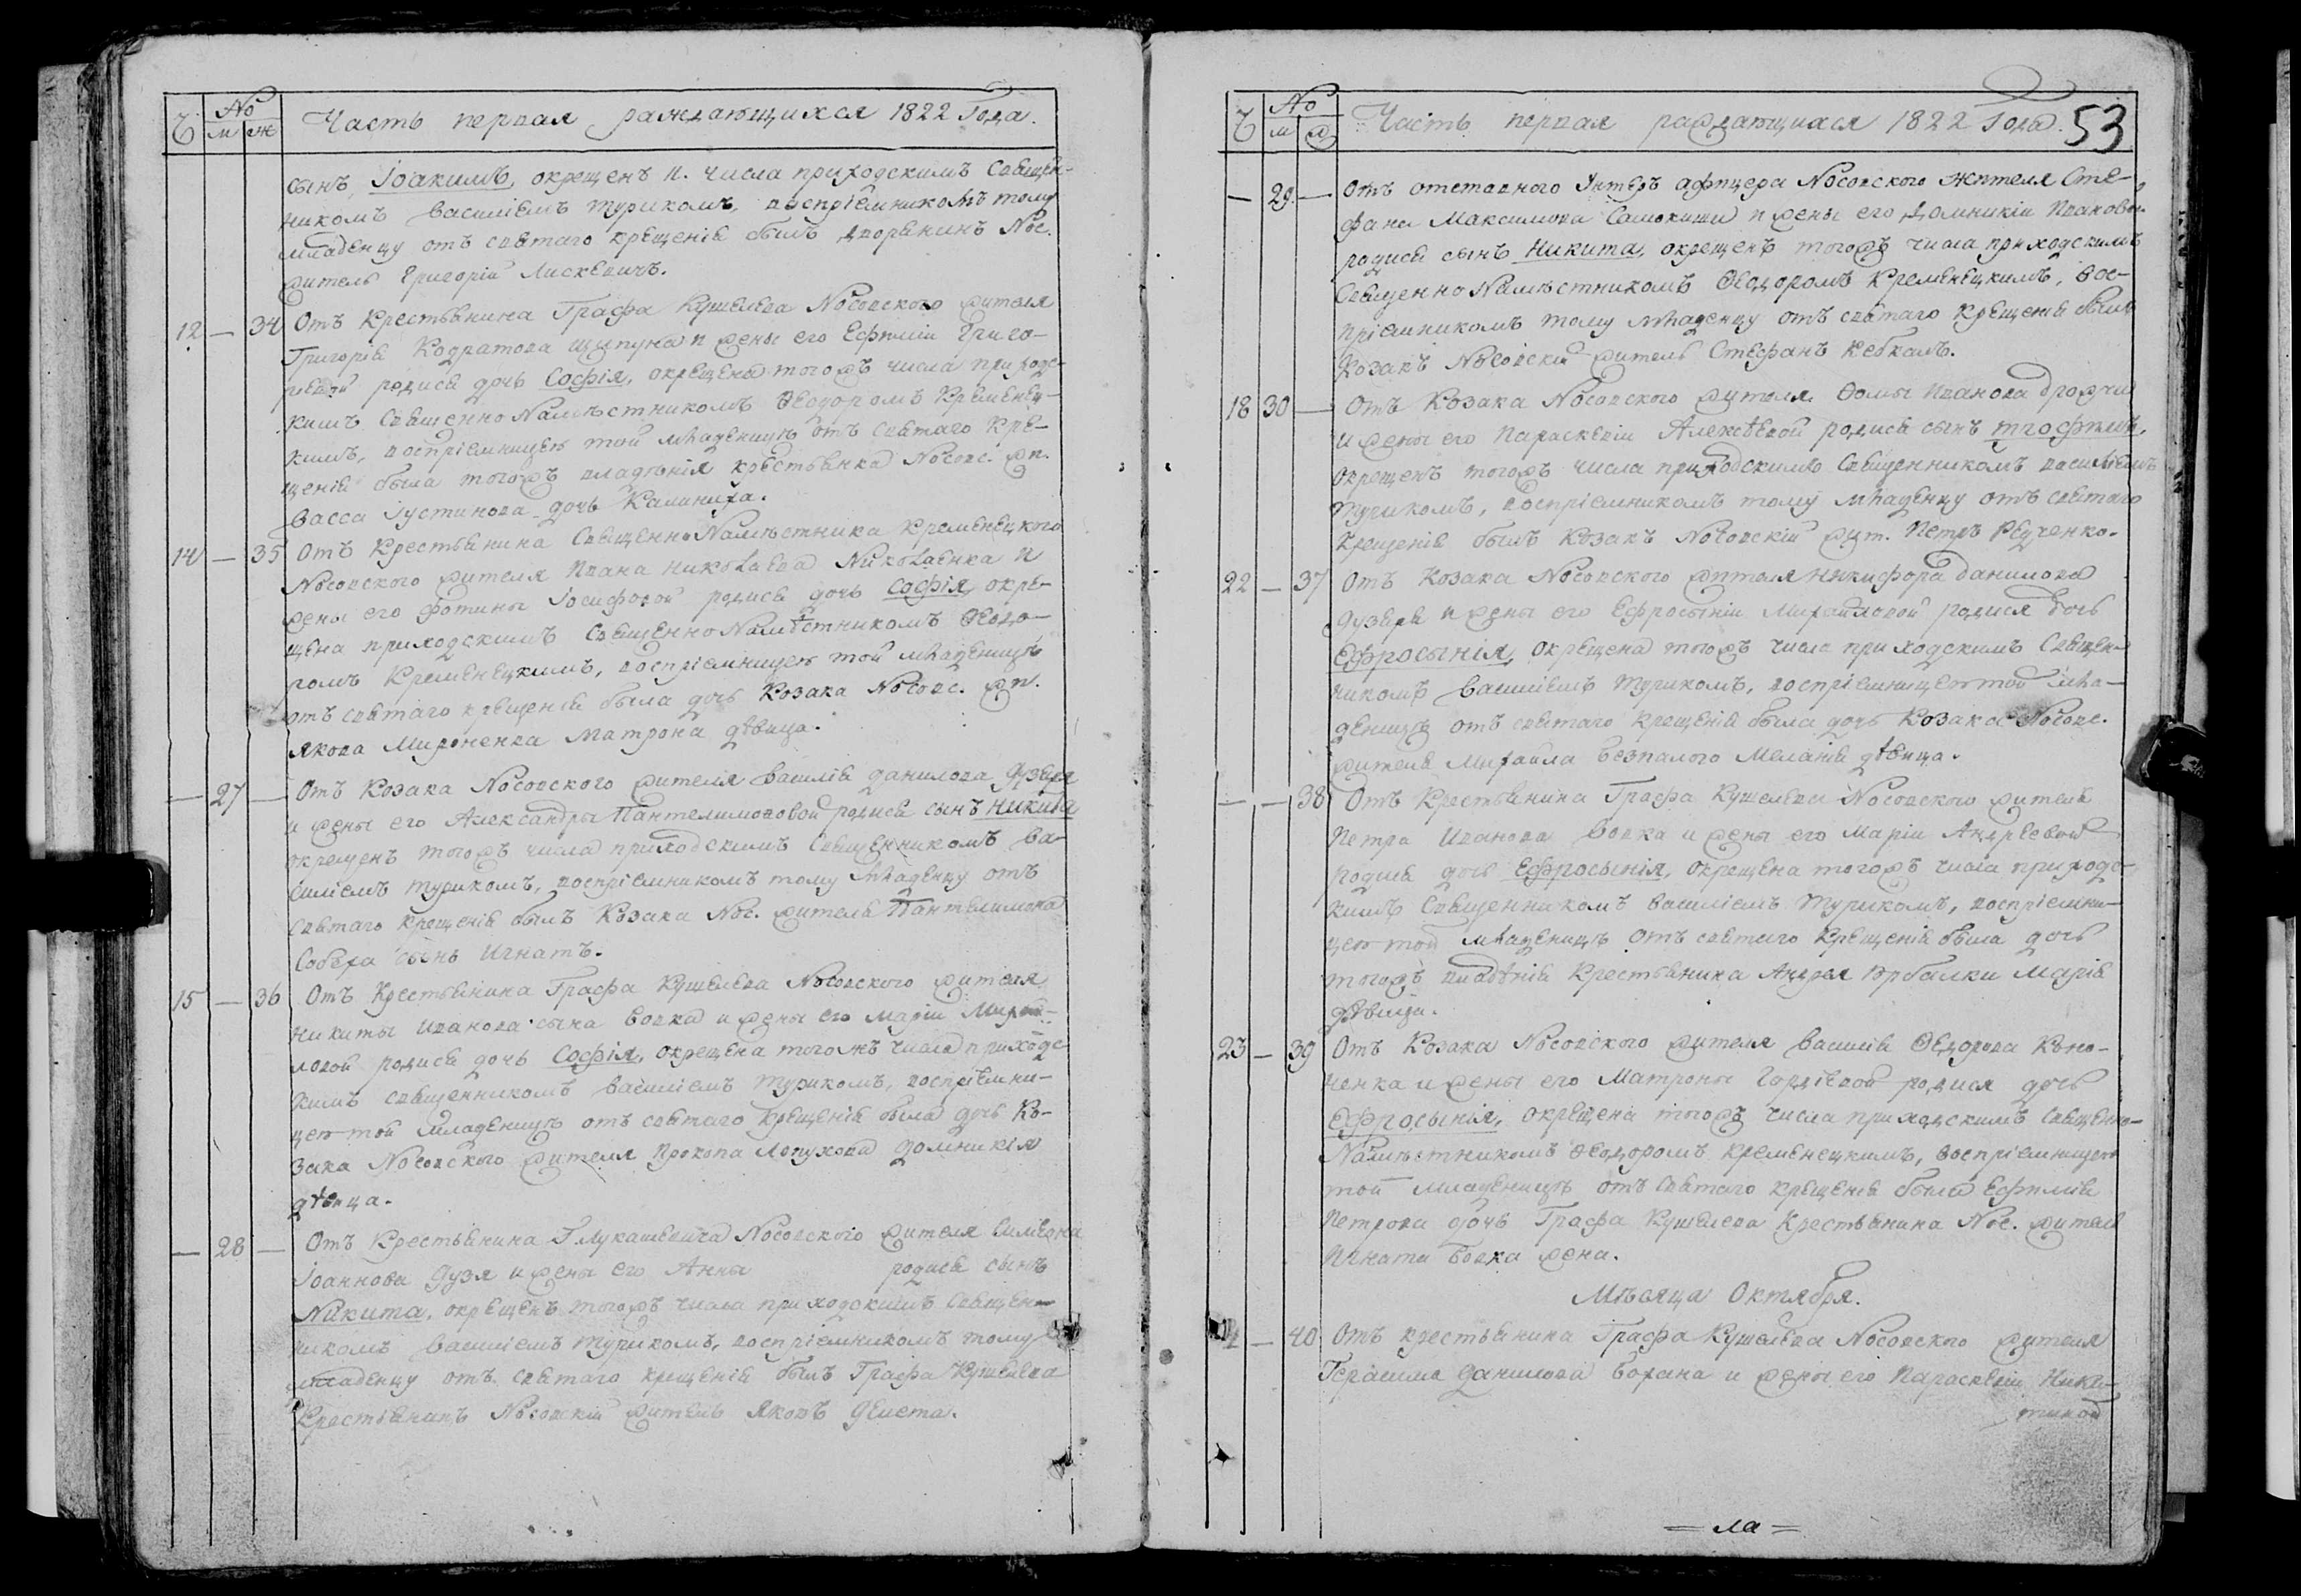 Ч. No
м ж
Часть первая раждающихся 1822 Года.
сынъ Іоакимъ, окрещенъ 11. числа приходскимъ Священ-
никомъ Василіемъ Турикомъ, воспріемникомъ тому
младенцу отъ святаго крещенія былъ дворянинъ Нос.
житель Григорій Лискевичъ.
12 — 34 Отъ Крестьянина Графа Кушелева Носовского жителя
Григорія Кодратова Щипуна и жены его Ефиміи Григо-
рьевой родися дочь Софія, окрещена тогожъ числа приходс-
кимъ СвященноНамѣстникомъ Ѳеодоромъ Кременец-
кимъ, воспріемницею той младеницѣ отъ святаго Кре-
щенія была тогожъ владѣнія крестьянка Носовс. жи.
Васса Іустинова дочь Калиниха.
14 — 35 Отъ Крестьянина СвященноНамѣстника Кременецкого
Носовского жителя Ивана Николаева Николаенка и
жены его Фотины Іосифовой родися дочь Софія, окре-
щена приходскимъ СвященноНамѣстникомъ Ѳеодо-
ромъ Кременецкимъ, воспріемницею той младеницѣ
отъ святаго крещенія была дочь Козака Носовс. жи.
Якова Мироненка Матрона дѣвица.
— 27 — Отъ Козака Носовского жителя Василія Данилова Дузеря
и жены его Александры Пантелимоновой родися сынъ Никита
окрещенъ тогожъ числа приходскимъ Священникомъ Ва-
силіемъ Турикомъ, воспріемникомъ тому младенцу отъ
святаго крещенія былъ Козака Нос. жителя Пантелимона
сынъ Игнатъ.
15 — 36 Отъ Крестьянина Графа Кушелева Носовского жителя
Никиты Иванова сына Вовка и жены его Маріи Михай-
ловой родися дочь Софія, окрещена тогожъ числа приходс
кимъ священникомъ Василіемъ Турикомъ, воспріемни-
цею той младеницѣ отъ святаго крещенія была дочь Ко-
зака Носовского жителя Прокопа Лопухова Домникія
дѣвица.
— 28 — Отъ Крестьянина Г. Лукашевича Носовского жителя Симеона
Іоаннова Дузя и жены его Анны родися сынъ
Никита, окрещенъ тогожъ числа приходскимъ Священ-
никомъ Василіемъ Турикомъ, воспріемникомъ тому
младенцу отъ святаго крещенія былъ Графа Кушелева
Крестьянинъ Носовскій житель Яковъ
Ч. No
м ж
Часть первая раждающихся 1822 Года. 53
— 29. — Отъ отставного Унтеръ афицера Носовского жителя Сте-
фана Максимова и жены его Домникіи Ивановы.
родися сынъ Никита, окрещенъ тогожъ числа приходскимъ
СвященноНамѣстникомъ Ѳеодоромъ Кременецкимъ, вос-
пріемникомъ тому младенцу отъ святаго крещенія былъ
Козакъ Носовскій житель Стефанъ Кебкалъ.
18 30 — Отъ Козака Носовского жителя Ѳомы Иванова
и жены его Параскевіи Алексѣевой родися сынъ Трофимъ,
окрещенъ тогожъ числа приходскимъ Священникомъ Василіемъ
Турикомъ, воспріемникомъ тому младенцу отъ святаго
крещенія былъ Козакъ Носовскій жит. Петръ
22 — 37 Отъ Козака Носовского жителя Никифора Данилова
Дузеря и жены его Ефросыніи Михайловой родися дочь
Ефросынія, окрещена тогожъ числа приходскимъ Священ-
никомъ Василіемъ Турикомъ, воспріемницею той мла-
деницѣ отъ святаго крещенія была дочь Козака Носовс.
жителя Михаила Безпалого Меланія дѣвица.
— — 38 Отъ Крестьянина Графа Кушелева Носовского жителя
Петра Иванова Вовка и жены его Маріи Андреевой
родися дочь Ефросынія, окрещена тогожъ числа приходс-
кимъ Священникомъ Василіемъ Турикомъ, воспріемни-
цею той младеницѣ отъ святаго крещенія была дочь
тогожъ владѣнія Крестьянина Андрея Марія
дѣвица.
23 — 39 Отъ Козака Носовского жителя Василія Ѳедорова Коно-
ненка и жены его Матроны Гордіевой родися дочь
Ефросынія, окрещена тогожъ числа приходскимъ Священно-
Намѣстникомъ Ѳеодоромъ Кременецкимъ, воспріемницею
той младеницѣ отъ святаго крещенія была Ефимія
Петрова дочь Графа Кушелева Крестьянина Нос. жителя
Игната Вовка жена.
Мѣсяца Октября.
— 40 Отъ крестьянина Графа Кушелева Носовского жителя
Герасима Данилова и жены его Параскевіи Ники-
тиной
= ла =